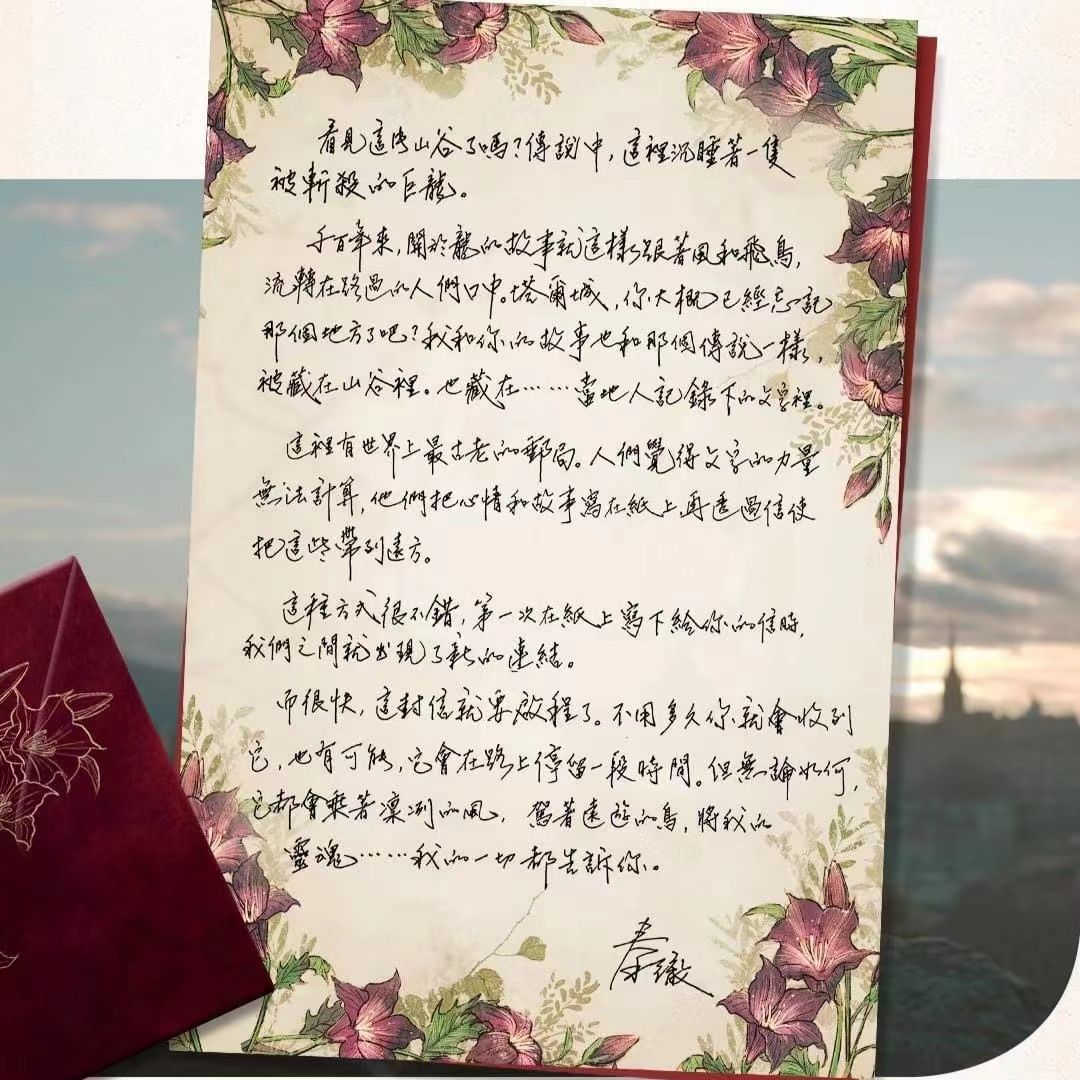 看見這片山谷了嗎？傳說中，這裡沉睡著一隻
被斬殺的巨龍。
千百年來，關於龍的故事就這樣跟著風和飛鳥，
流轉在路過的人們口中。塔爾城，你大概已經忘記
那個地方了吧？我和你的故事也和那個傳說一樣，
被藏在山谷裡。也藏在……當地人記錄下的文字裡。
這裡有世界上最古老的郵局。人們覺得文字的力量
無法計算，他們把心情和故事寫在紙上，再透過信使
把這些帶到遠方。
這種方式很不錯，第一次在紙上寫下給你的信時，
我們之間就出現了新的連結。
而很快，這封信就要啟程了。不用多久你就會收到
它，也有可能，它會在路上停留一段時間。但無論如何，
它都會乘著凜冽的風，駕著遠遊的鳥，將我的
靈魂……我的一切都告訴你。
秦徹